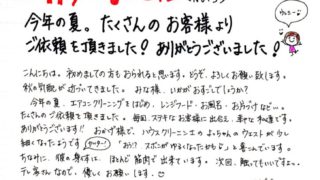 今年の夏。たくさんのお客様より
ご依頼を頂きました！ありがとうございました！
こんにちは。初めましての方もおられると思います。どうぞ、よろしくお願い致します。
秋の到来が近づいてきました。みな様、いかがおすごしでしょうか？
今年の夏、エアコンクリーニングをはじめ、レンジフード・お風呂・お片づけなど…。
たくさんのご依頼を頂きました。毎回、ステキなお客様に出会え、幸せな毎日です。
ありがとうございます!! おかげ様で、ハウスクリーニーのよっちゃんのウェストが少し
細くなったようです 「おっ!? ズボンがゆるくなったかも♪」と喜んでいます。
ちなみに、腹の身すは、ほとんど筋肉で出来ています。次回、触ってもいいですよ…。
テレ屋さんなので、優しくお願いします。